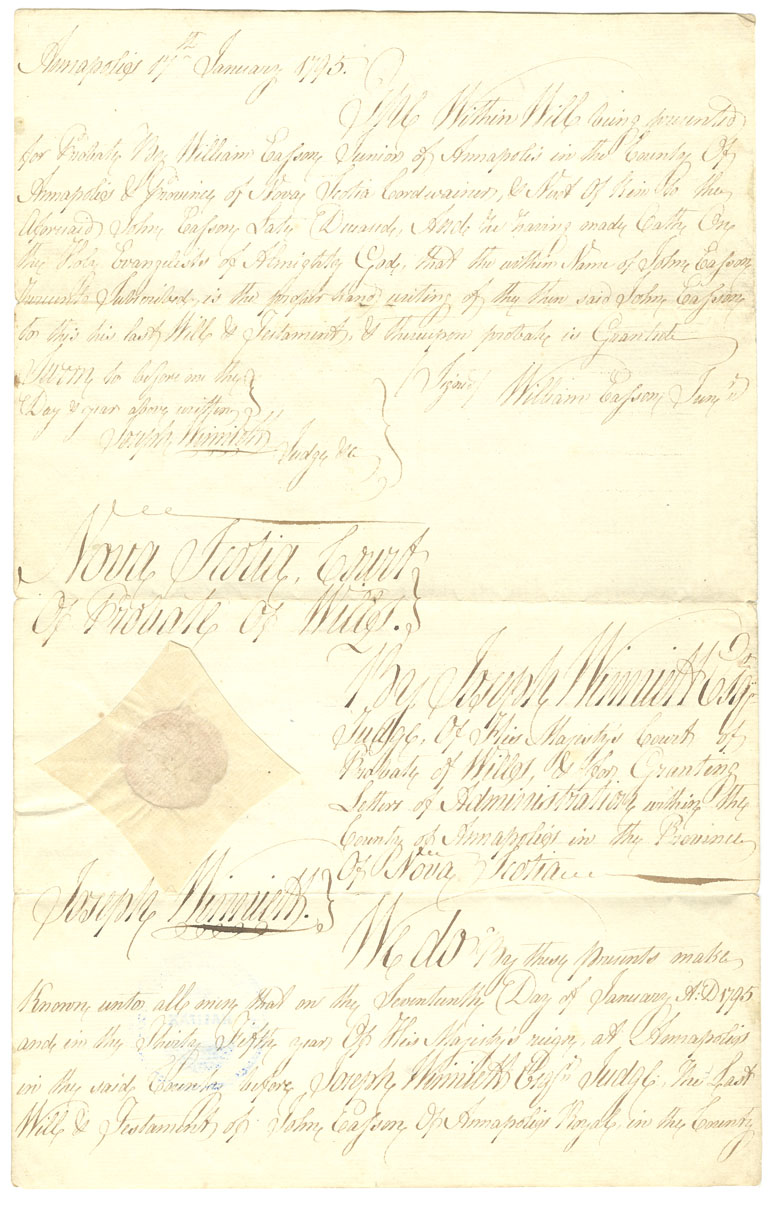 Annapolis 17th January 1795.
The Within Will being presented
for Probate By William Easson Junior of Annapolis in the County Of
Annapolis & Province of Nova Scotia Cordwainer, & Next Of Kin to the
Aforesaid John Easson Late Deceased, And he having made Oath On
the Holy Evangelists of Almighty God, that the within Name of John Easson
Subscribed, is the proper hand writing of the then said John Easson
to this his last Will & Testament, & thereupon probate is Granted
Sworn to before me the
Day & year above written
Signed William Easson Junr
Joseph Winniett
Judge &c
Nova Scotia, Court
Of Probate of Wills.
By Joseph Winniett Esqr
Judge, Of His Majesty's Court of
Probate of Wills, & for Granting
Letters of Administration within the
County of Annapolis in the Province
Of Nova Scotia
Joseph Winniett.
We do By these presents make
Known unto all men that on the Seventeenth Day of January A:D 1795
and in the Thirty Fifth year Of His Majesty's reign, at Annapolis
in the said County before Joseph Winniett Esqr Judge, the Last
Will & Testament of John Easson Of Annapolis Royal, in the County